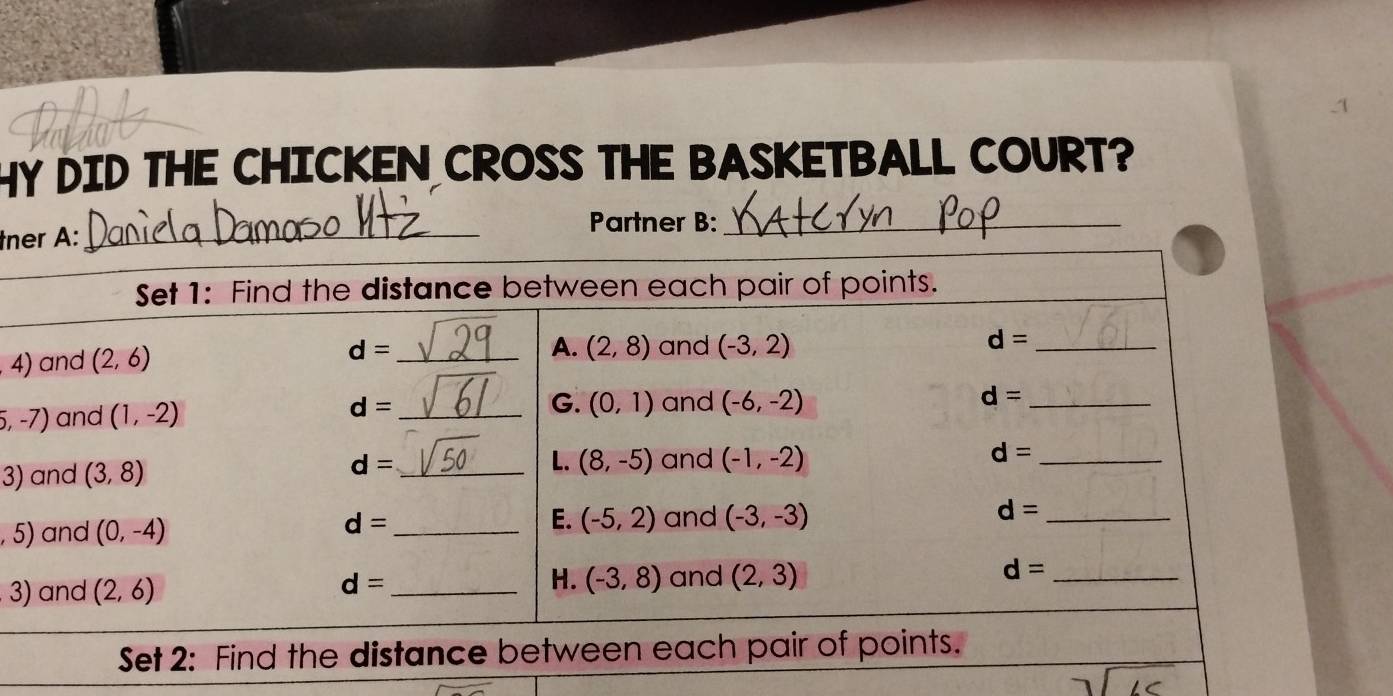 HY DID THE CHICKEN CROSS THE BASKETBALL COURT?
tner A: Daniela Damaso Mtz Partner B: KAtcryn Pop
Set 1: Find the distance between each pair of points.
, 4) and (2, 6) d = √29 A. (2, 8) and (-3, 2) d = √61
5, -7) and (1, -2) d = √61 G. (0, 1) and (-6, -2) d =
3) and (3, 8) d = √50 L. (8, -5) and (-1, -2) d =
, 5) and (0, -4) d = E. (-5, 2) and (-3, -3) d =
3) and (2, 6) d = H. (-3, 8) and (2, 3) d =
Set 2: Find the distance between each pair of points.